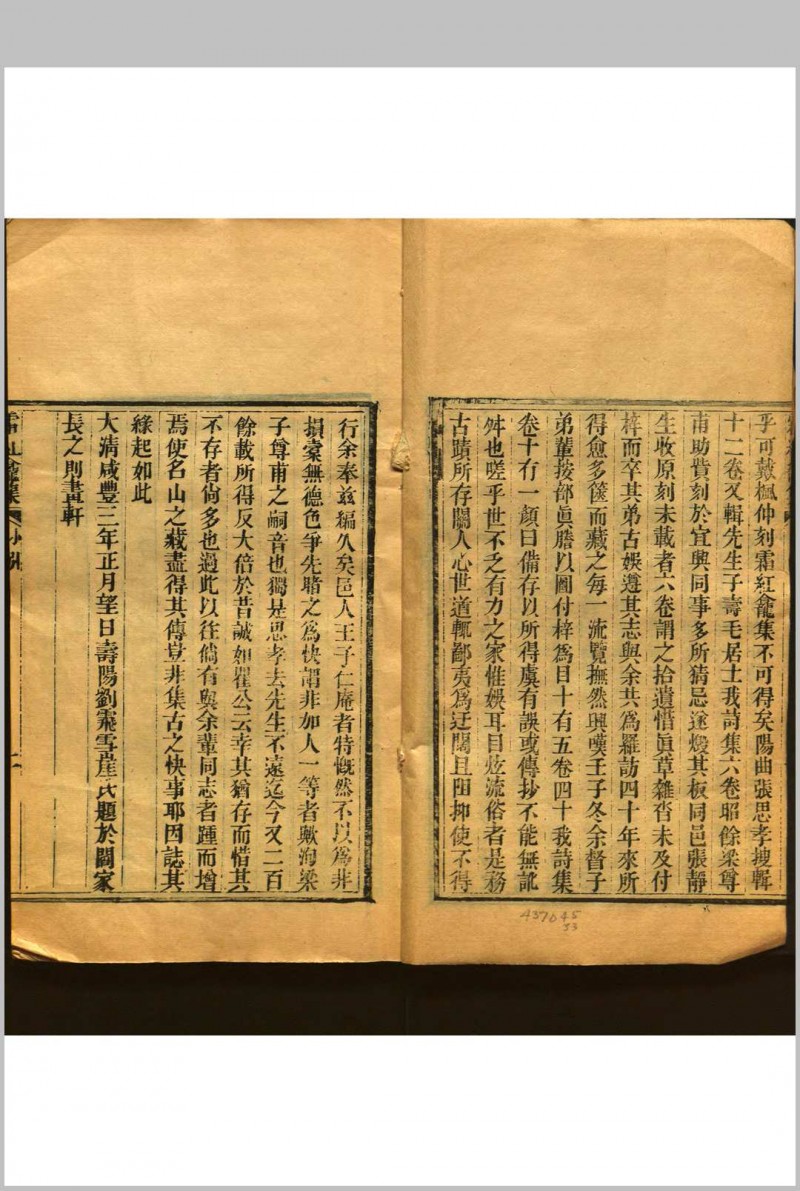 乎可歎楓仲刻霜紅龕集不可得矣陽曲張思孝搜輯
十二卷又輯先生子壽毛居士我詩集六卷昭餘梁尊
甫助貲刻於宜興同事多所猜忌遂燬其板同邑張靜
生收原刻未載者六卷謂之拾遺惜眞草雜沓未及付
梓而卒其弟古娛遵其志與余共爲羅訪四十年來所
得愈多篋而藏之每一流覽撫然興嘆壬子冬余督子
弟輩按部眞謄以圖付梓爲目十有五卷四十我詩集
卷十有一顏曰備存以所得虞有誤或傳抄不能無訛
舛也嗟乎世不乏有力之家惟娛耳目炫流俗者是務
古蹟所存關人心世道輒鄙夷爲迂闊且阻抑使不得
行余奉兹編久矣邑人王子仁庵者特慨然不以爲非
損橐無德色爭先睹之爲快謂非加人一等者歟洵梁
子尊甫之嗣音也獨是思孝去先生不遠迄今又二百
餘載所得反大倍於昔誠如瞿公云幸其猶存而惜其
不存者倘多也過此以往倘有與余輩同志者踵而增
焉使名山之藏盡得其傳豈非集古之快事耶因誌其
緣起如此
大清咸豐三年正月望日壽陽劉霏雪崖氏題於闞家
長之則晝軒
霜紅龕集 小引 二
437645
33